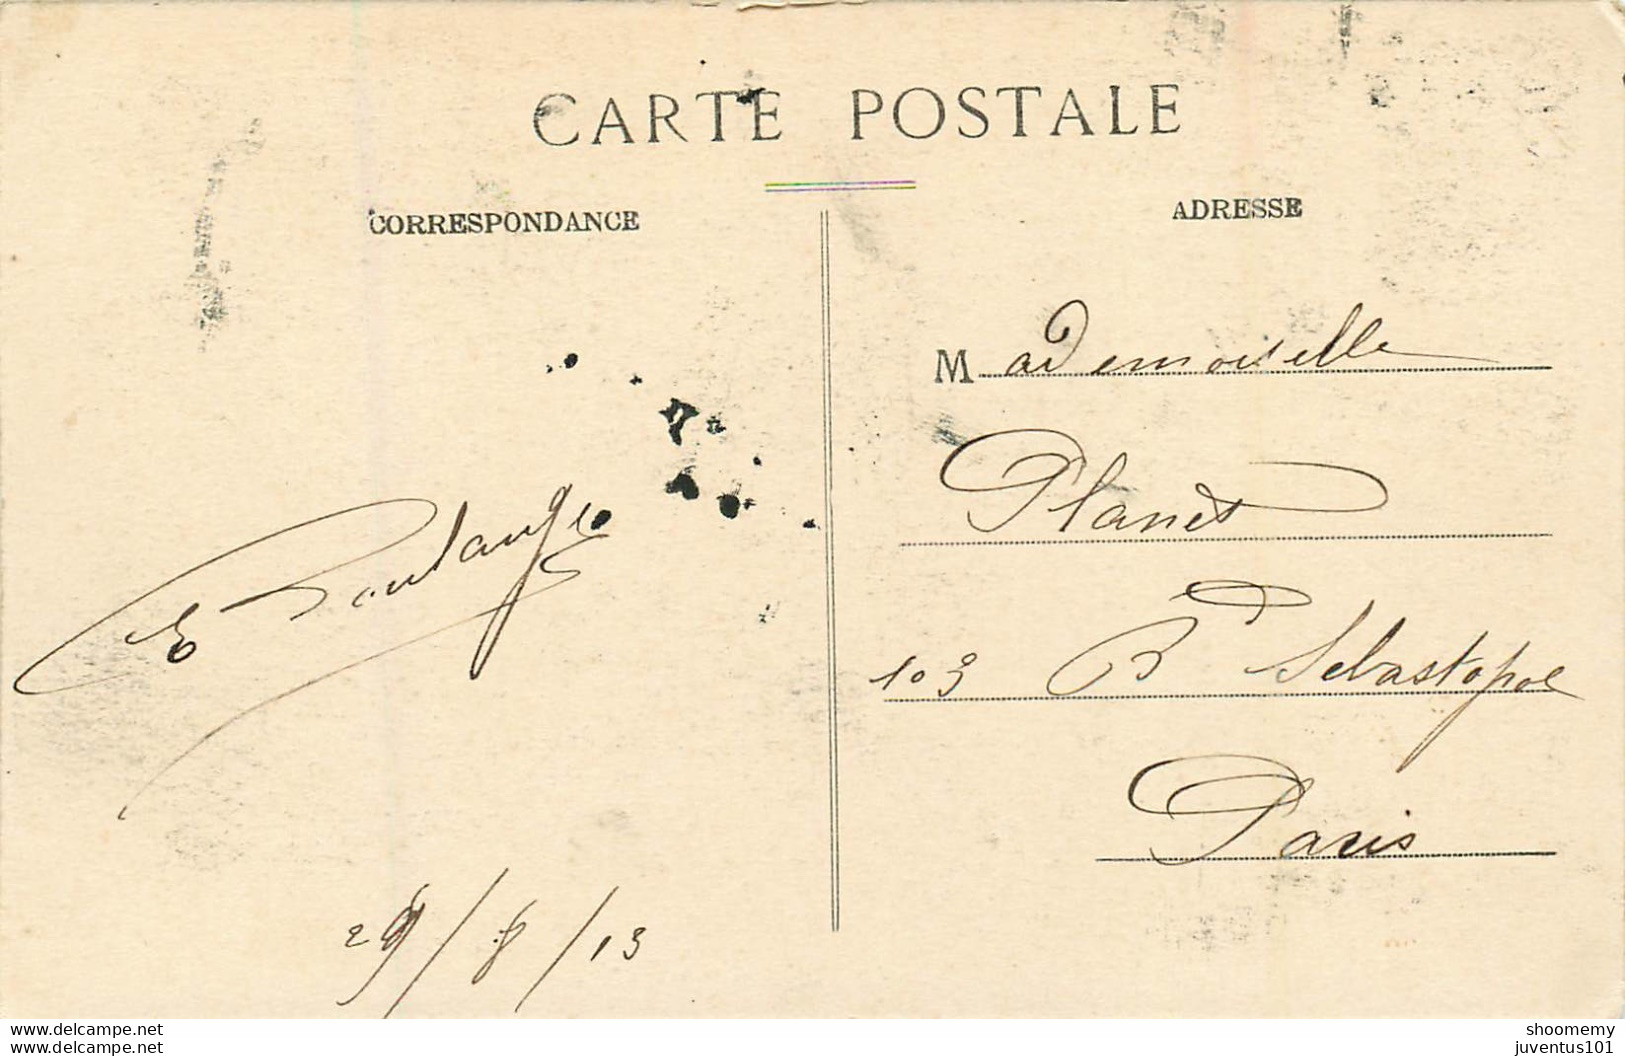 CARTE POSTALE
CORRESPONDANCE
ADRESSE
Mademoiselle
Planet
103 Bd Sebastopol
Paris
29/8/13
www.delcampe.net
www.delcampe.net
shoomemy
juventus101